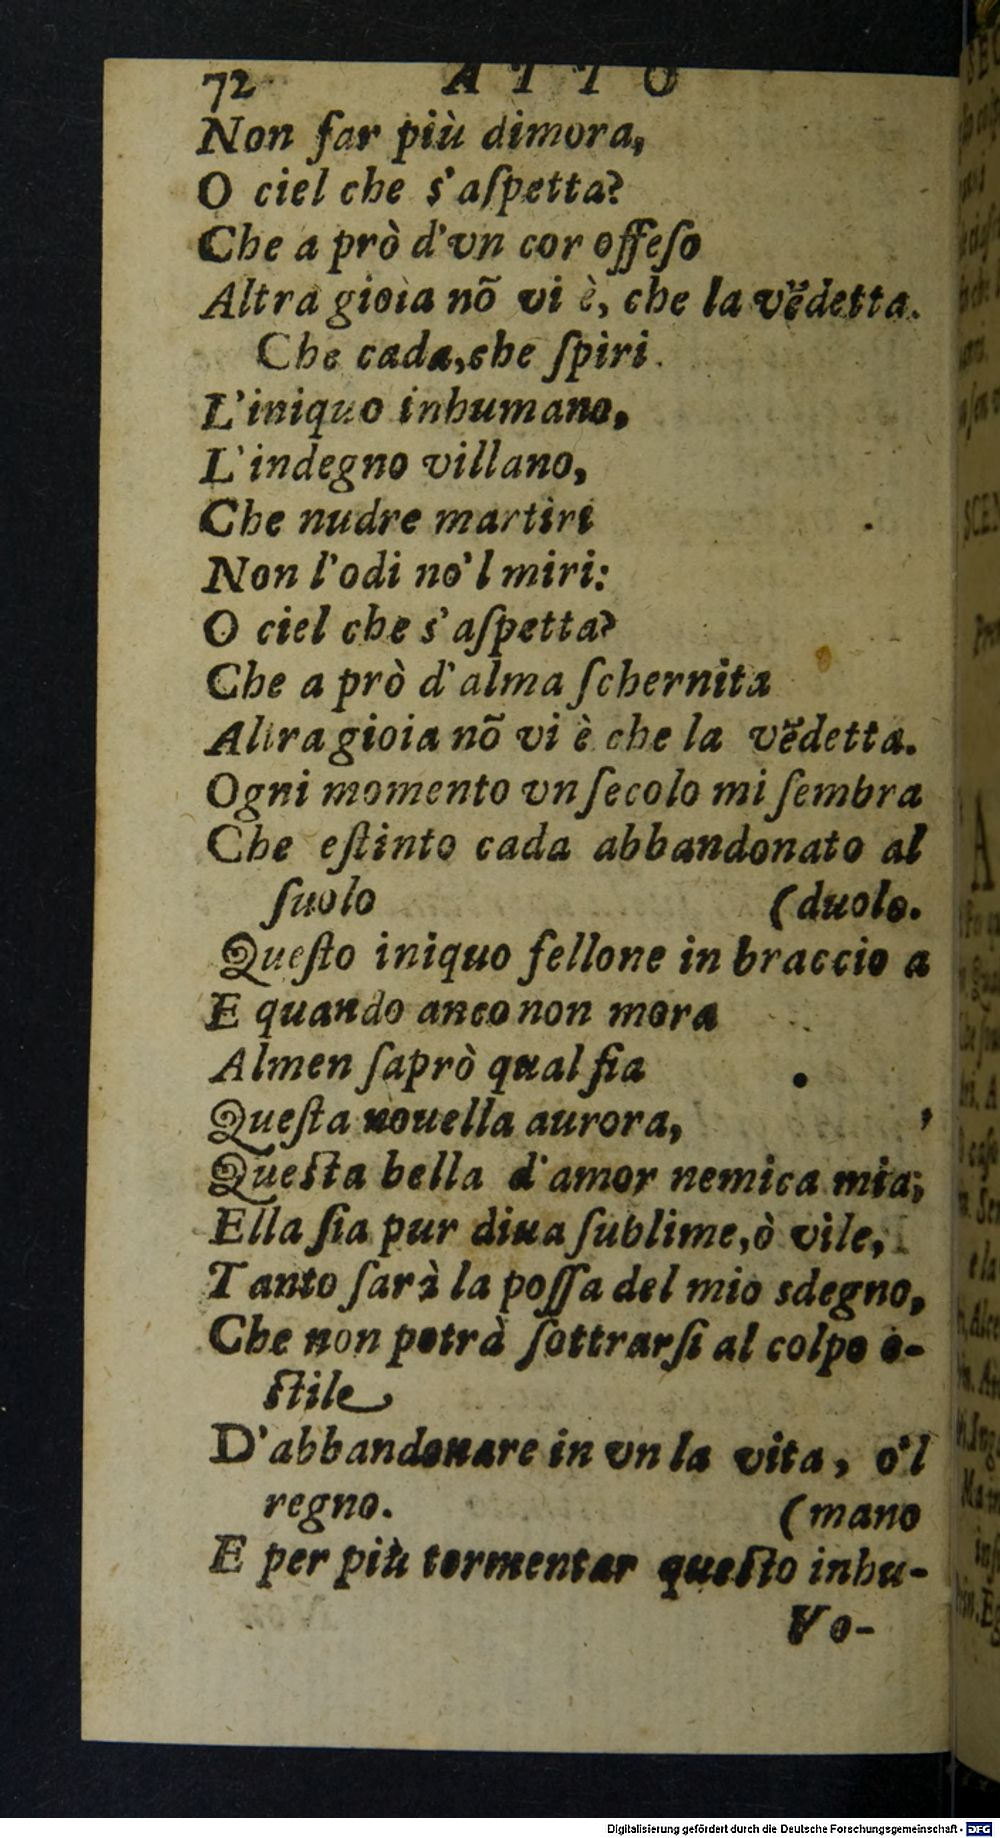 72 ATTO
Non far più dimora,
O ciel che s'aſpetta?
Che a prò d'vn cor offeſo
Altra gioia nõ vi è, che la vẽdetta.
Che cada, che ſpiri.
L'iniquo inhumano,
L'indegno villano,
Che nudre martìri
Non l'odi no'l miri:
O ciel che s'aſpetta?
Che a prò d'alma ſchernita
Altra gioia nõ vi è che la vẽdetta.
Ogni momento vn ſecolo mi ſembra
Che eſtinto cada abbandonato al
ſuolo (duolo.
Queſto iniquo fellone in braccio a
E quando anco non mora
Almen ſaprò qual ſia
Queſta nouella aurora,
Queſta bella d'amor nemica mia;
Ella ſia pur diua ſublime, ò vile,
Tanto ſarà la poſſa del mio sdegno,
Che non potrà ſottrarſi al colpo o-
ſtile
D'abbandonare in vn la vita, o'l
regno. (mano
E per più tormentar queſto inhu-
Vo-
Digitalisierung gefördert durch die Deutsche Forschungsgemeinschaft - DFG